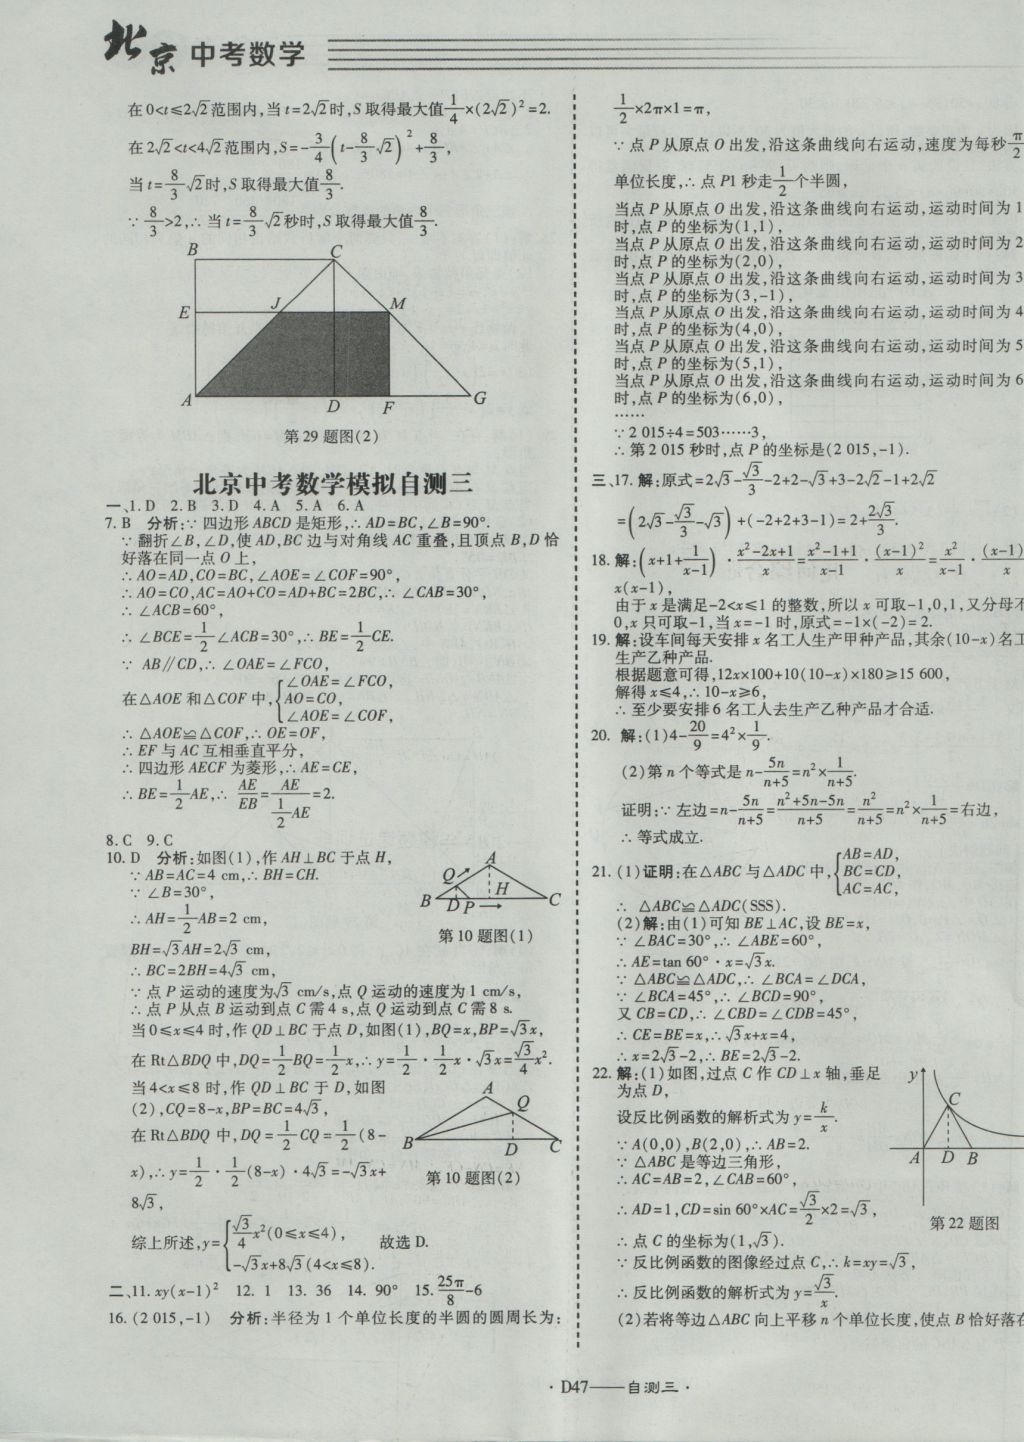 北京中考数学
在0<t≤2√2范围内,当t=2√2时,S取得最大值1/4×(2√2)²=2.
在2√2<t<4√2范围内,S=-3/4(t-8/3√2)²+8/3,
当t=8/3√2时,S取得最大值8/3.
∵8/3>2,∴当t=8/3√2秒时,S取得最大值8/3.
B C
E J M
A D F G
第29题图(2)
北京中考数学模拟自测三
一、1. D 2. B 3. D 4. A 5. A 6. A
7. B 分析:∵四边形ABCD是矩形,∴AD=BC,∠B=90°.
∵翻折∠B,∠D,使AD,BC边与对角线AC重叠,且顶点B,D恰
好落在同一点O上,
∴AO=AD,CO=BC,∠AOE=∠COF=90°,
∴AO=CO,AC=AO+CO=AD+BC=2BC,∴∠CAB=30°,
∴∠ACB=60°,
∴∠BCE=1/2∠ACB=30°,∴BE=1/2CE.
∵AB∥CD,∴∠OAE=∠FCO,
在△AOE和△COF中,{∠OAE=∠FCO,
AO=CO,
∠AOE=∠COF,
∴△AOE≌△COF,∴OE=OF,
∴EF与AC互相垂直平分,
∴四边形AECF为菱形,∴AE=CE,
∴BE=1/2AE,∴AE/EB=AE/(1/2AE)=2.
8. C 9. C
10. D 分析:如图(1),作AH⊥BC于点H,
∵AB=AC=4 cm,∴BH=CH.
∵∠B=30°,
∴AH=1/2AB=2 cm,
BH=√3AH=2√3 cm,
∴BC=2BH=4√3 cm,
A
Q H
B D P C
第10题图(1)
∵点P运动的速度为√3 cm/s,点Q运动的速度为1 cm/s,
∴点P从点B运动到点C需4 s,点Q运动到点C需8 s.
当0≤x≤4时,作QD⊥BC于点D,如图(1),BQ=x,BP=√3x,
在Rt△BDQ中,DQ=1/2BQ=1/2x,∴y=1/2·1/2x·√3x=√3/4x².
当4<x≤8时,作QD⊥BC于D,如图
(2),CQ=8-x,BP=BC=4√3,
在Rt△BDQ中,DQ=1/2CQ=1/2(8-
x),∴y=1/2·1/2(8-x)·4√3=-√3x+
8√3,
A
Q
B D C
第10题图(2)
综上所述,y={√3/4x²(0≤x≤4),
-√3x+8√3(4<x≤8). 故选D.
二、11. xy(x-1)² 12. 1 13. 36 14. 90° 15. 25π/8-6
16. (2 015,-1) 分析:半径为1个单位长度的半圆的圆周长为:
1/2×2π×1=π,
∵点P从原点O出发,沿这条曲线向右运动,速度为每秒π/2
单位长度,∴点P1秒走1/2个半圆,
当点P从原点O出发,沿这条曲线向右运动,运动时间为1
时,点P的坐标为(1,1),
当点P从原点O出发,沿这条曲线向右运动,运动时间为2
时,点P的坐标为(2,0),
当点P从原点O出发,沿这条曲线向右运动,运动时间为3
时,点P的坐标为(3,-1),
当点P从原点O出发,沿这条曲线向右运动,运动时间为4
时,点P的坐标为(4,0),
当点P从原点O出发,沿这条曲线向右运动,运动时间为5
时,点P的坐标为(5,1),
当点P从原点O出发,沿这条曲线向右运动,运动时间为6
时,点P的坐标为(6,0),
……
∵2 015÷4=503……3,
∴第2 015秒时,点P的坐标是(2 015,-1).
三、17. 解:原式=2√3-√3/3-2+2-√3+3-2√2-1+2√2
=(2√3-√3/3-√3)+(-2+2+3-1)=2+2√3/3.
18. 解:(x+1+1/(x-1))·(x²-2x+1)/x=(x²-1+1)/(x-1)·(x-1)²/x=x²/(x-1)·(x-1)
x(x-1),
由于x是满足-2<x≤1的整数,所以x可取-1,0,1,又分母不
0,x只可取-1,当x=-1时,原式=-1×(-2)=2.
19. 解:设车间每天安排x名工人生产甲种产品,其余(10-x)名工
生产乙种产品.
根据题意可得,12x×100+10(10-x)×180≥15 600,
解得x≤4,∴10-x≥6,
∴至少要安排6名工人去生产乙种产品才合适.
20. 解:(1)4-20/9=4²×1/9.
(2)第n个等式是n-5n/(n+5)=n²×1/(n+5).
证明:∵左边=n-5n/(n+5)=(n²+5n-5n)/(n+5)=n²/(n+5)=n²×1/(n+5)=右边,
∴等式成立.
21. (1)证明:在△ABC与△ADC中,{AB=AD,
BC=CD,
AC=AC,
∴△ABC≌△ADC(SSS).
(2)解:由(1)可知BE⊥AC,设BE=x,
∵∠BAC=30°,∴∠ABE=60°,
∴AE=tan 60°·x=√3x.
∵△ABC≌△ADC,∴∠BCA=∠DCA,
∵∠BCA=45°,∴∠BCD=90°,
又CB=CD,∴∠CBD=∠CDB=45°,
∴CE=BE=x,∴√3x+x=4,
∴x=2√3-2,∴BE=2√3-2.
22. 解:(1)如图,过点C作CD⊥x轴,垂足
为点D,
设反比例函数的解析式为y=k/x.
∵A(0,0),B(2,0),∴AB=2.
∵△ABC是等边三角形,
∴AC=AB=2,∠CAB=60°,
∴AD=1,CD=sin 60°×AC=√3/2×2=√3,
∴点C的坐标为(1,√3).
y
C
A D B
第22题图
∵反比例函数的图像经过点C,∴k=xy=√3,
∴反比例函数的解析式为y=√3/x.
(2)若将等边△ABC向上平移n个单位长度,使点B恰好落在
·D47——自测三·